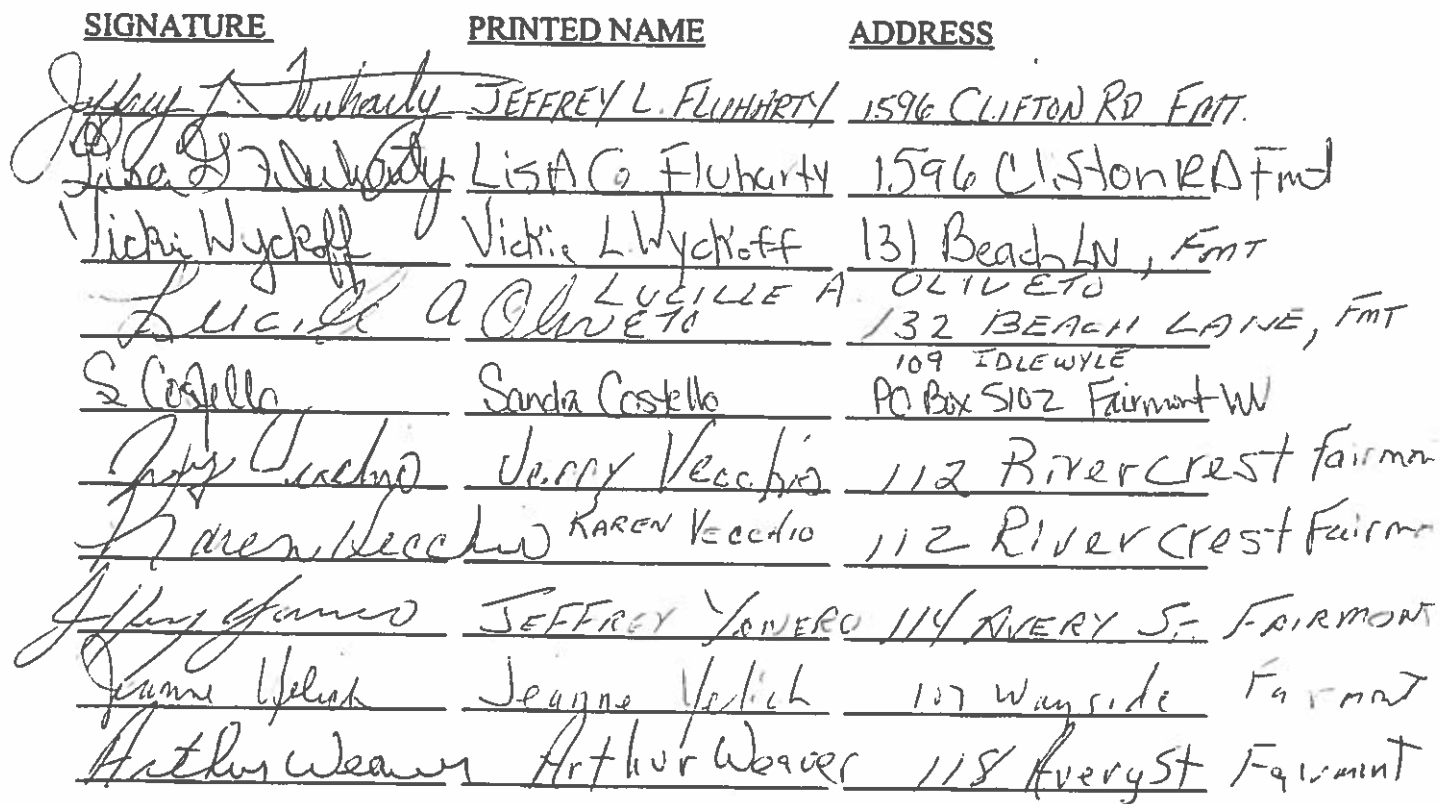 SIGNATURE PRINTED NAME ADDRESS
Jeffrey L. Fluharty JEFFREY L. FLUHARTY 1596 CLIFTON RD FMT.
Lisa G Fluharty LisA G Fluharty 1596 Clifton RD Fmt
Vicki Wyckoff Vickie L Wyckoff 131 Beach LN, FMT
LUCILLE A OLIVETO
Lucille A OliVETO 132 BEACH LANE, FMT
109 IDLEWYLE
S Costello Sandra Costello PO Box 5102 Fairmont WV
Jerry Vecchio Jerry Vecchio 112 Rivercrest fairmon
Karen Vecchio KAREN VECCHIO 112 Rivercrest Fairm
Jeffrey Yanero JEFFREY YANERO 114 AVERY St FAIRMONT
Jeanne Jeanne 107 Wayside Fairmont
Arthur Weaver Arthur Weaver 118 Avery St Fairmont